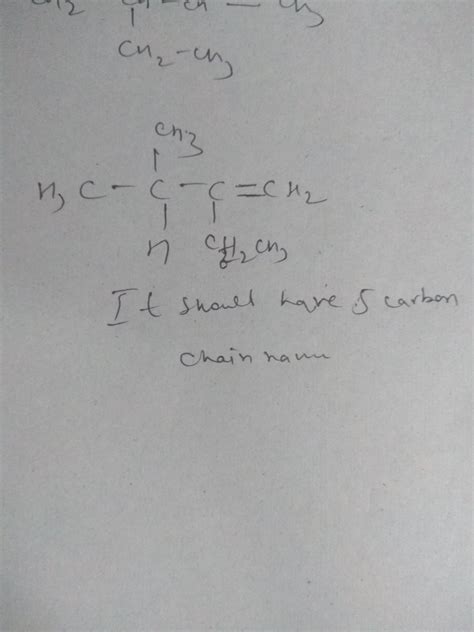 CH2 CH-CH - CH3
CH2-CH3
CH3
H3C-C-C=CH2
H CH2CH3
It should have 5 carbon
chain name